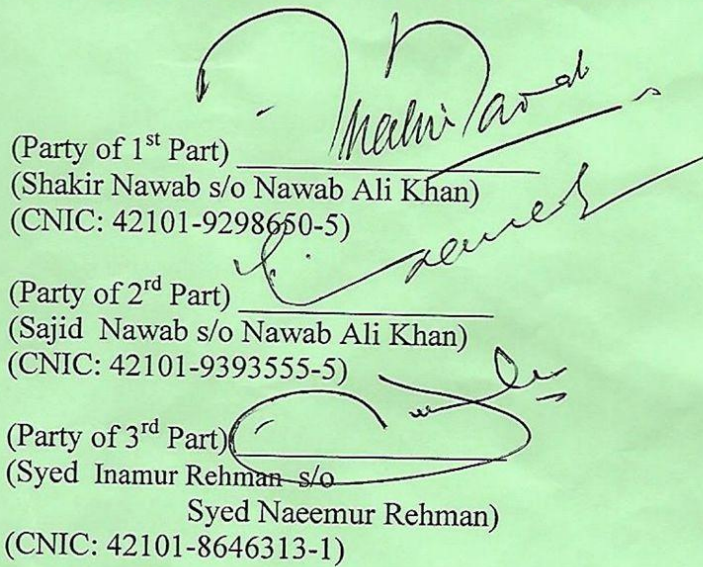 (Party of 1st Part) ____________
(Shakir Nawab s/o Nawab Ali Khan)
(CNIC: 42101-9298650-5)
(Party of 2rd Part) ____________
(Sajid Nawab s/o Nawab Ali Khan)
(CNIC: 42101-9393555-5)
(Party of 3rd Part) ____________
(Syed Inamur Rehman s/o
Syed Naeemur Rehman)
(CNIC: 42101-8646313-1)